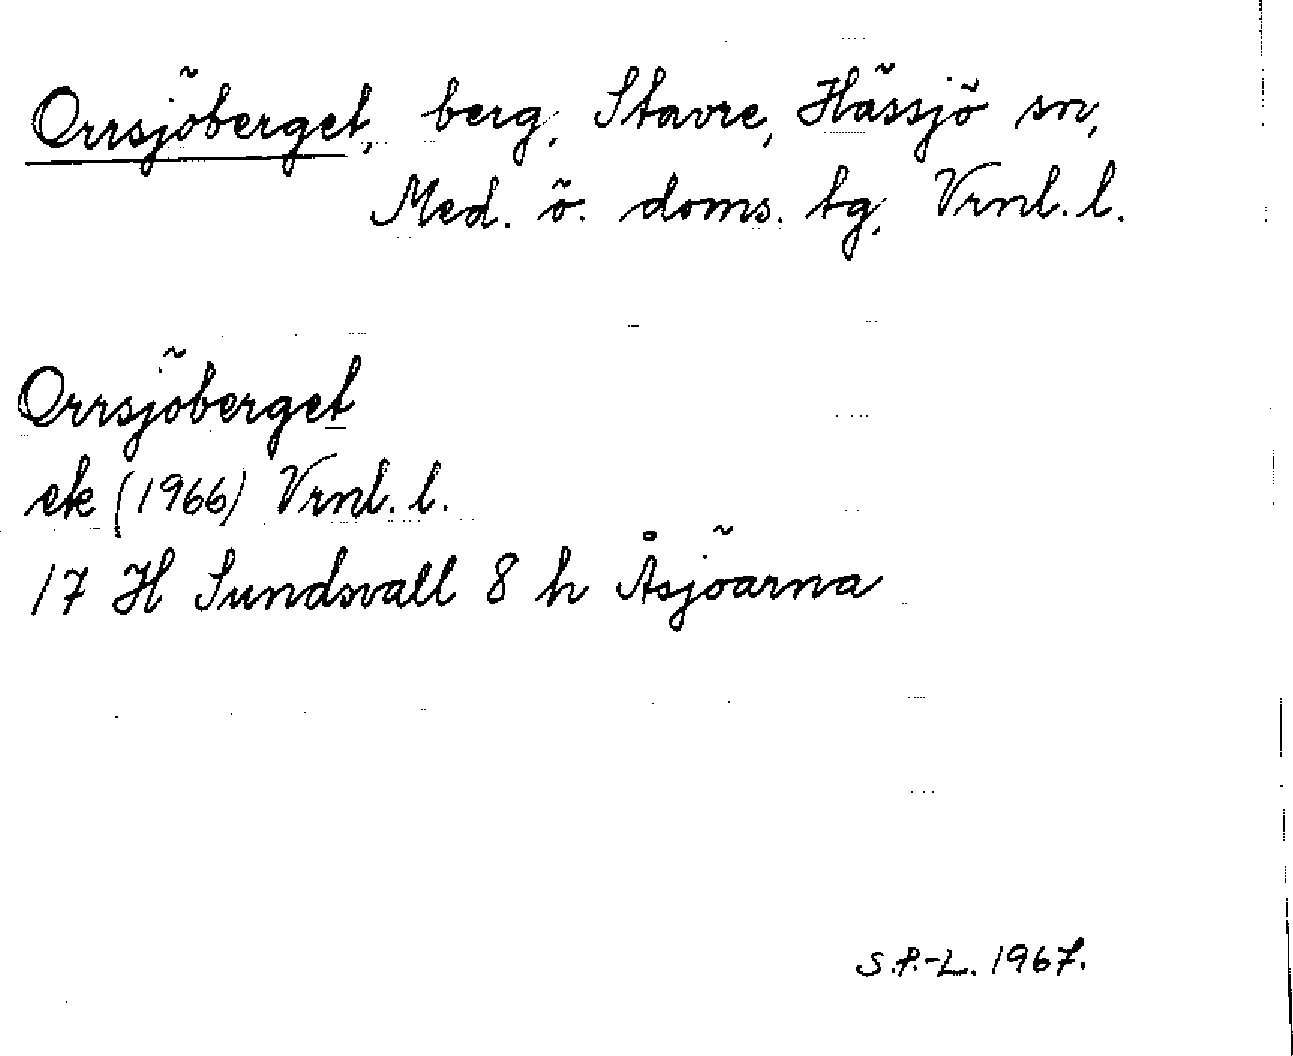 Orrsjöberget, berg, Stavre, Hässjö sn,
Med. ö. doms. tg, Vrnl. l.
Orrsjöberget
ek (1966) Vrnl. l.
17 H Sundsvall 8 h Åsjöarna
S.P.-L. 1967.